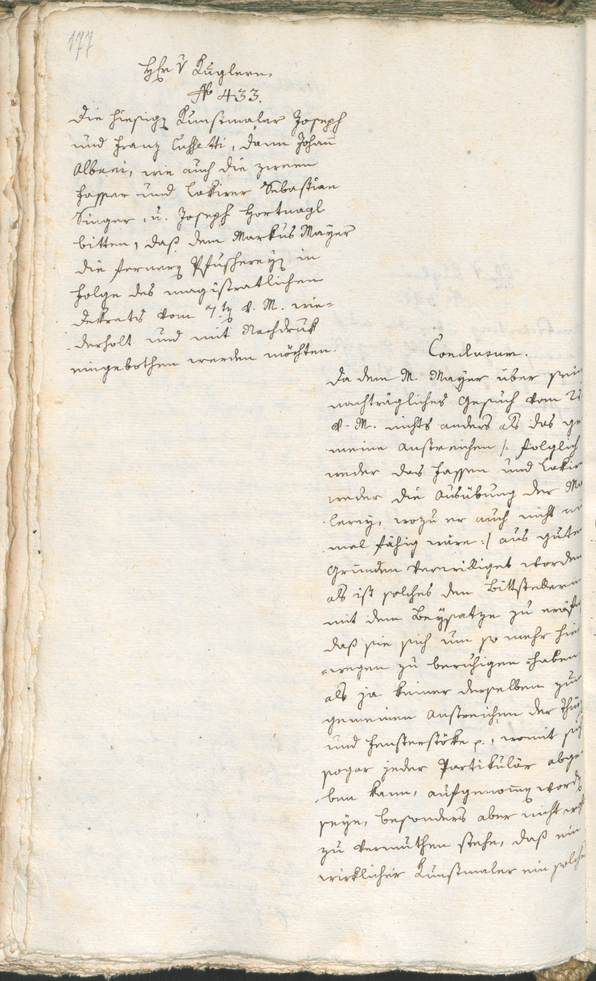 177
Hr v Kuglern.
No 433.
Die hiesigen Kunstmaler Joseph
und Franz Cussetti, dann Johann
Albrei, wie auch die zween
Fasser und Lakirer Sebastian
Singer, u. Joseph Hortnagl
bitten, daß dem Markus Mayer
die fernere Pfuscherey in
Folge des magistratlichen
Dekrets vom 7ten v. M. wie-
derholt und mit Nachdruk
eingebothen werden möchten.
Conclusum.
Da dem M. Mayer über sein
nachträgliches Gesuch vom
v. M. nichts anders als das ge
meine Anstreichen /: folglich
weder das Fassen und Lakir
weder die Ausübung der Ma
lerey, wozu er auch nicht
mal fähig wäre :/ aus guten
Gründen verwilliget worden
als ist solches den Bittstellern
mit dem Beysatze zu eröf
daß sie sich um so mehr hie
wegen zu beruhigen haben
als ja keiner derselben zum
gemeinen Anstreichen der Thür
und Fensterstöke p., womit sich
sogar jeder Partikulär abge-
ben kann, aufgenomen worden
seye, besonders aber nicht
zu vermuthen stehe, daß ein
wirklicher Kunstmaler ein solche